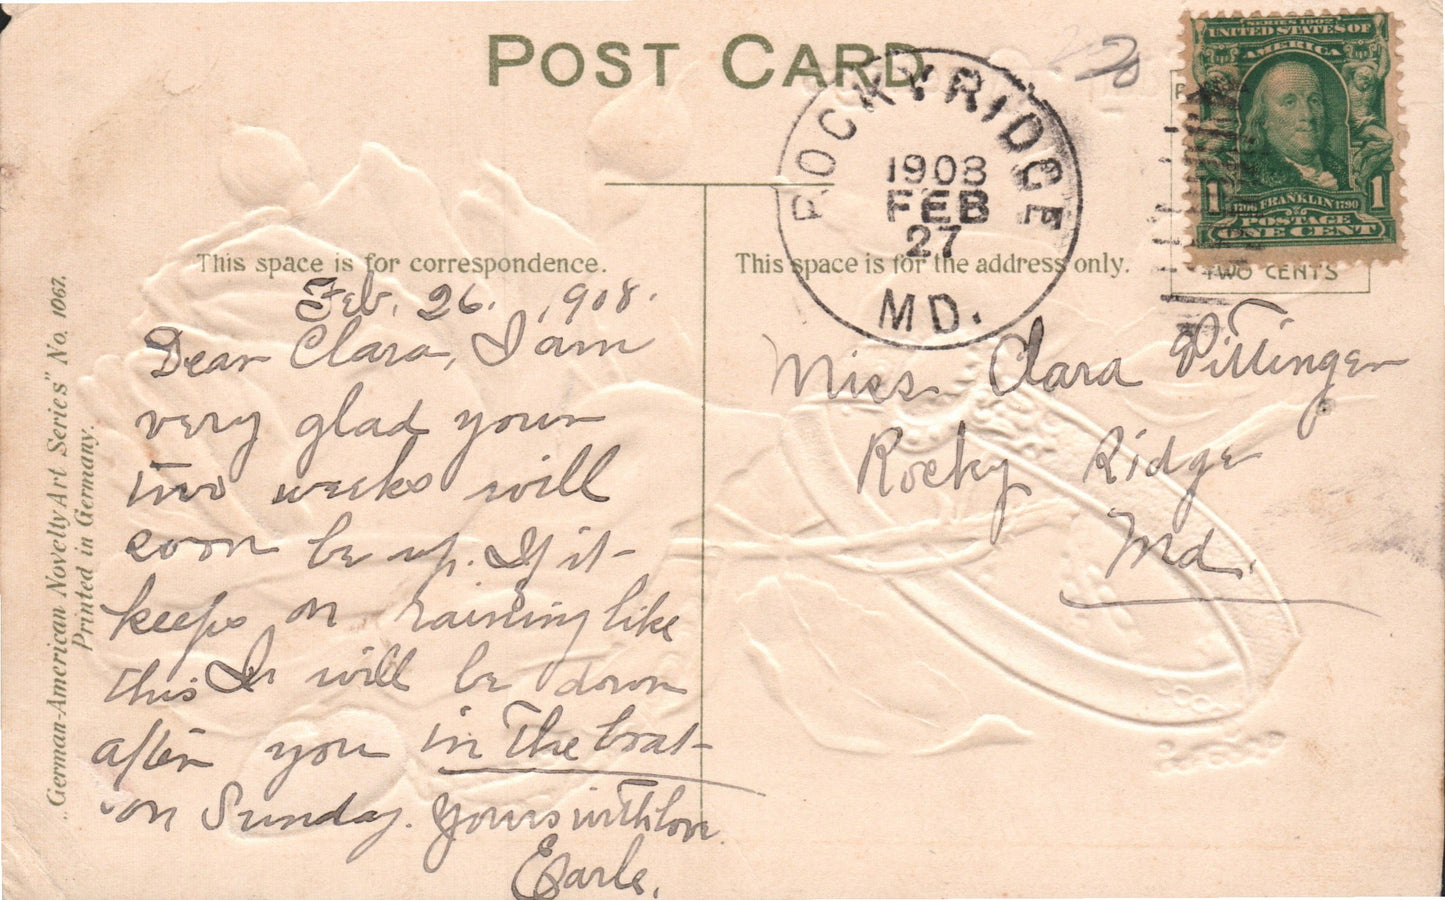 POST CARD
ROCKYRIDGE
1908
FEB
27
MD.
SERIES 1902
UNITED STATES OF
AMERICA
1 1
1706 FRANKLIN 1790
POSTAGE
ONE CENT
TWO CENTS
This space is for correspondence.
This space is for the address only.
"German-American Novelty Art Series" No. 1067.
Printed in Germany.
Feb. 26. 1908.
Dear Clara, I am
very glad your
two weeks will
soon be up. If it
keeps on raining like
this I will be down
after you in the boat
on Sunday. Yours with love
Earle.
Miss Clara Pittinger
Rocky Ridge
Md.